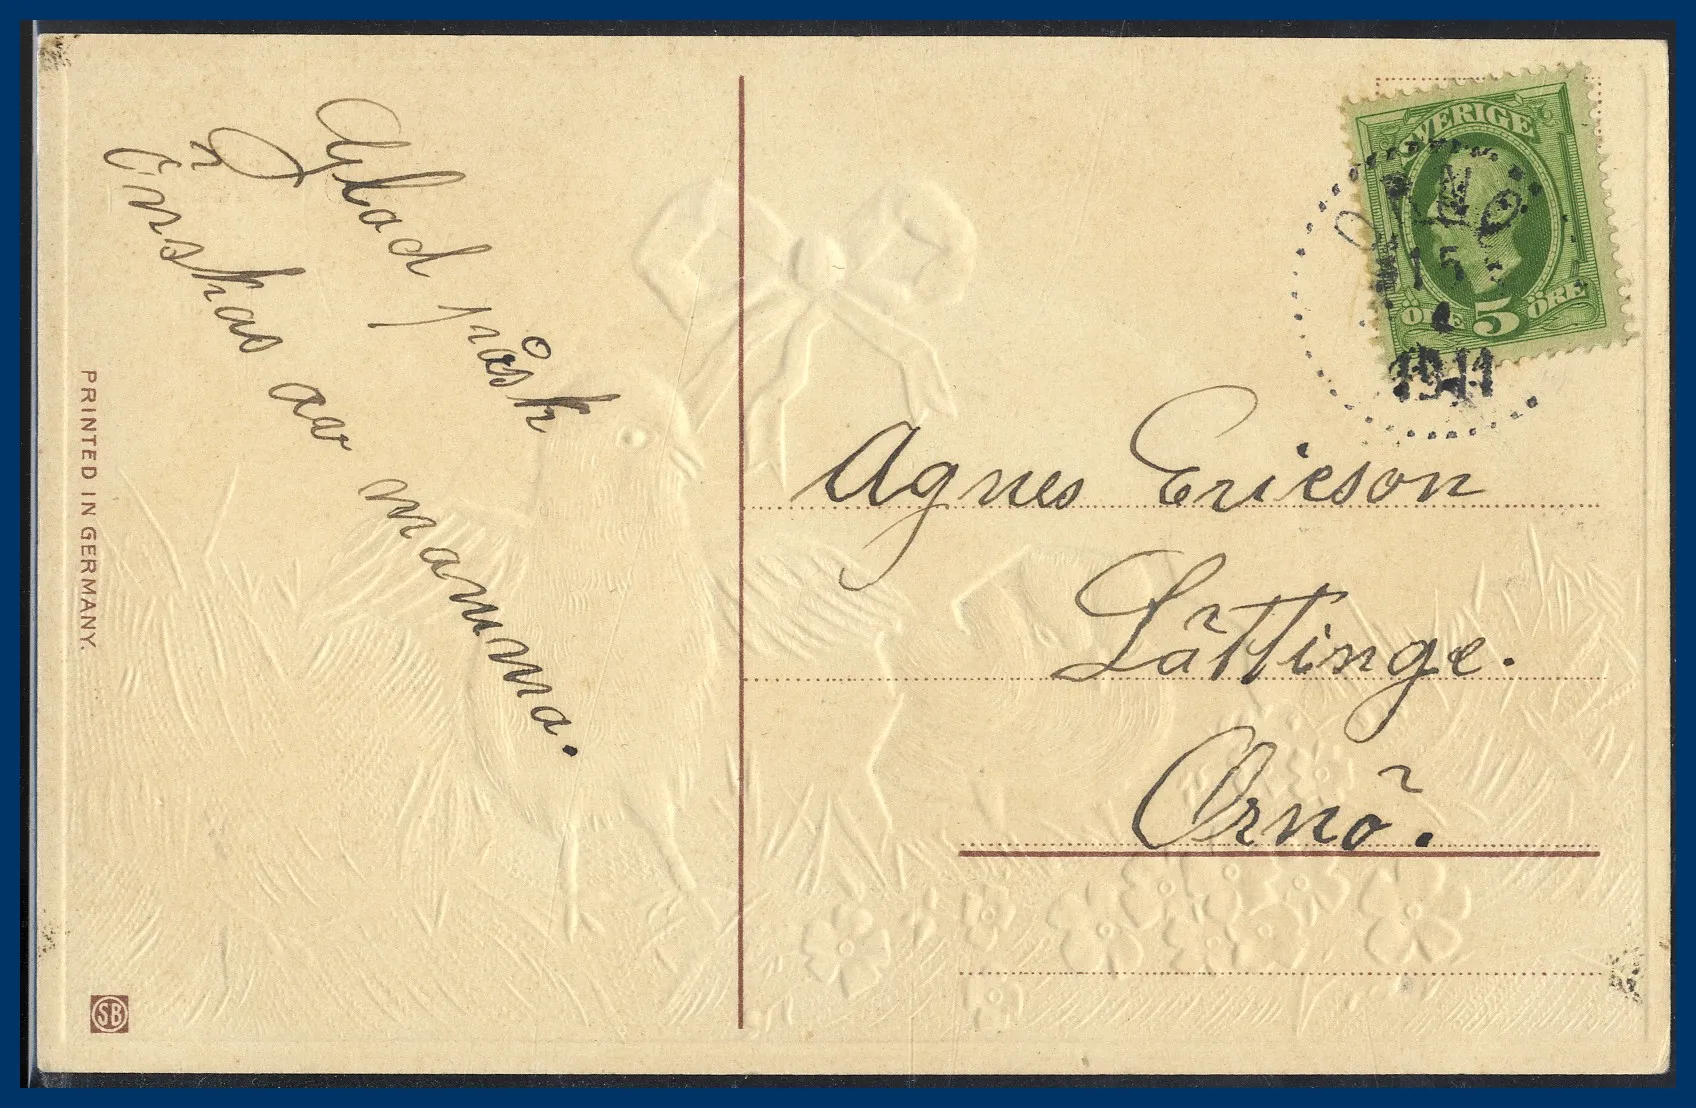 Glad påsk
önskas av mamma.
PRINTED IN GERMANY.
SB
SVERIGE
ORNÖ
15
4
1911
ÖRE 5 ÖRE
Agnes Ericson
Låttinge.
Ornö.